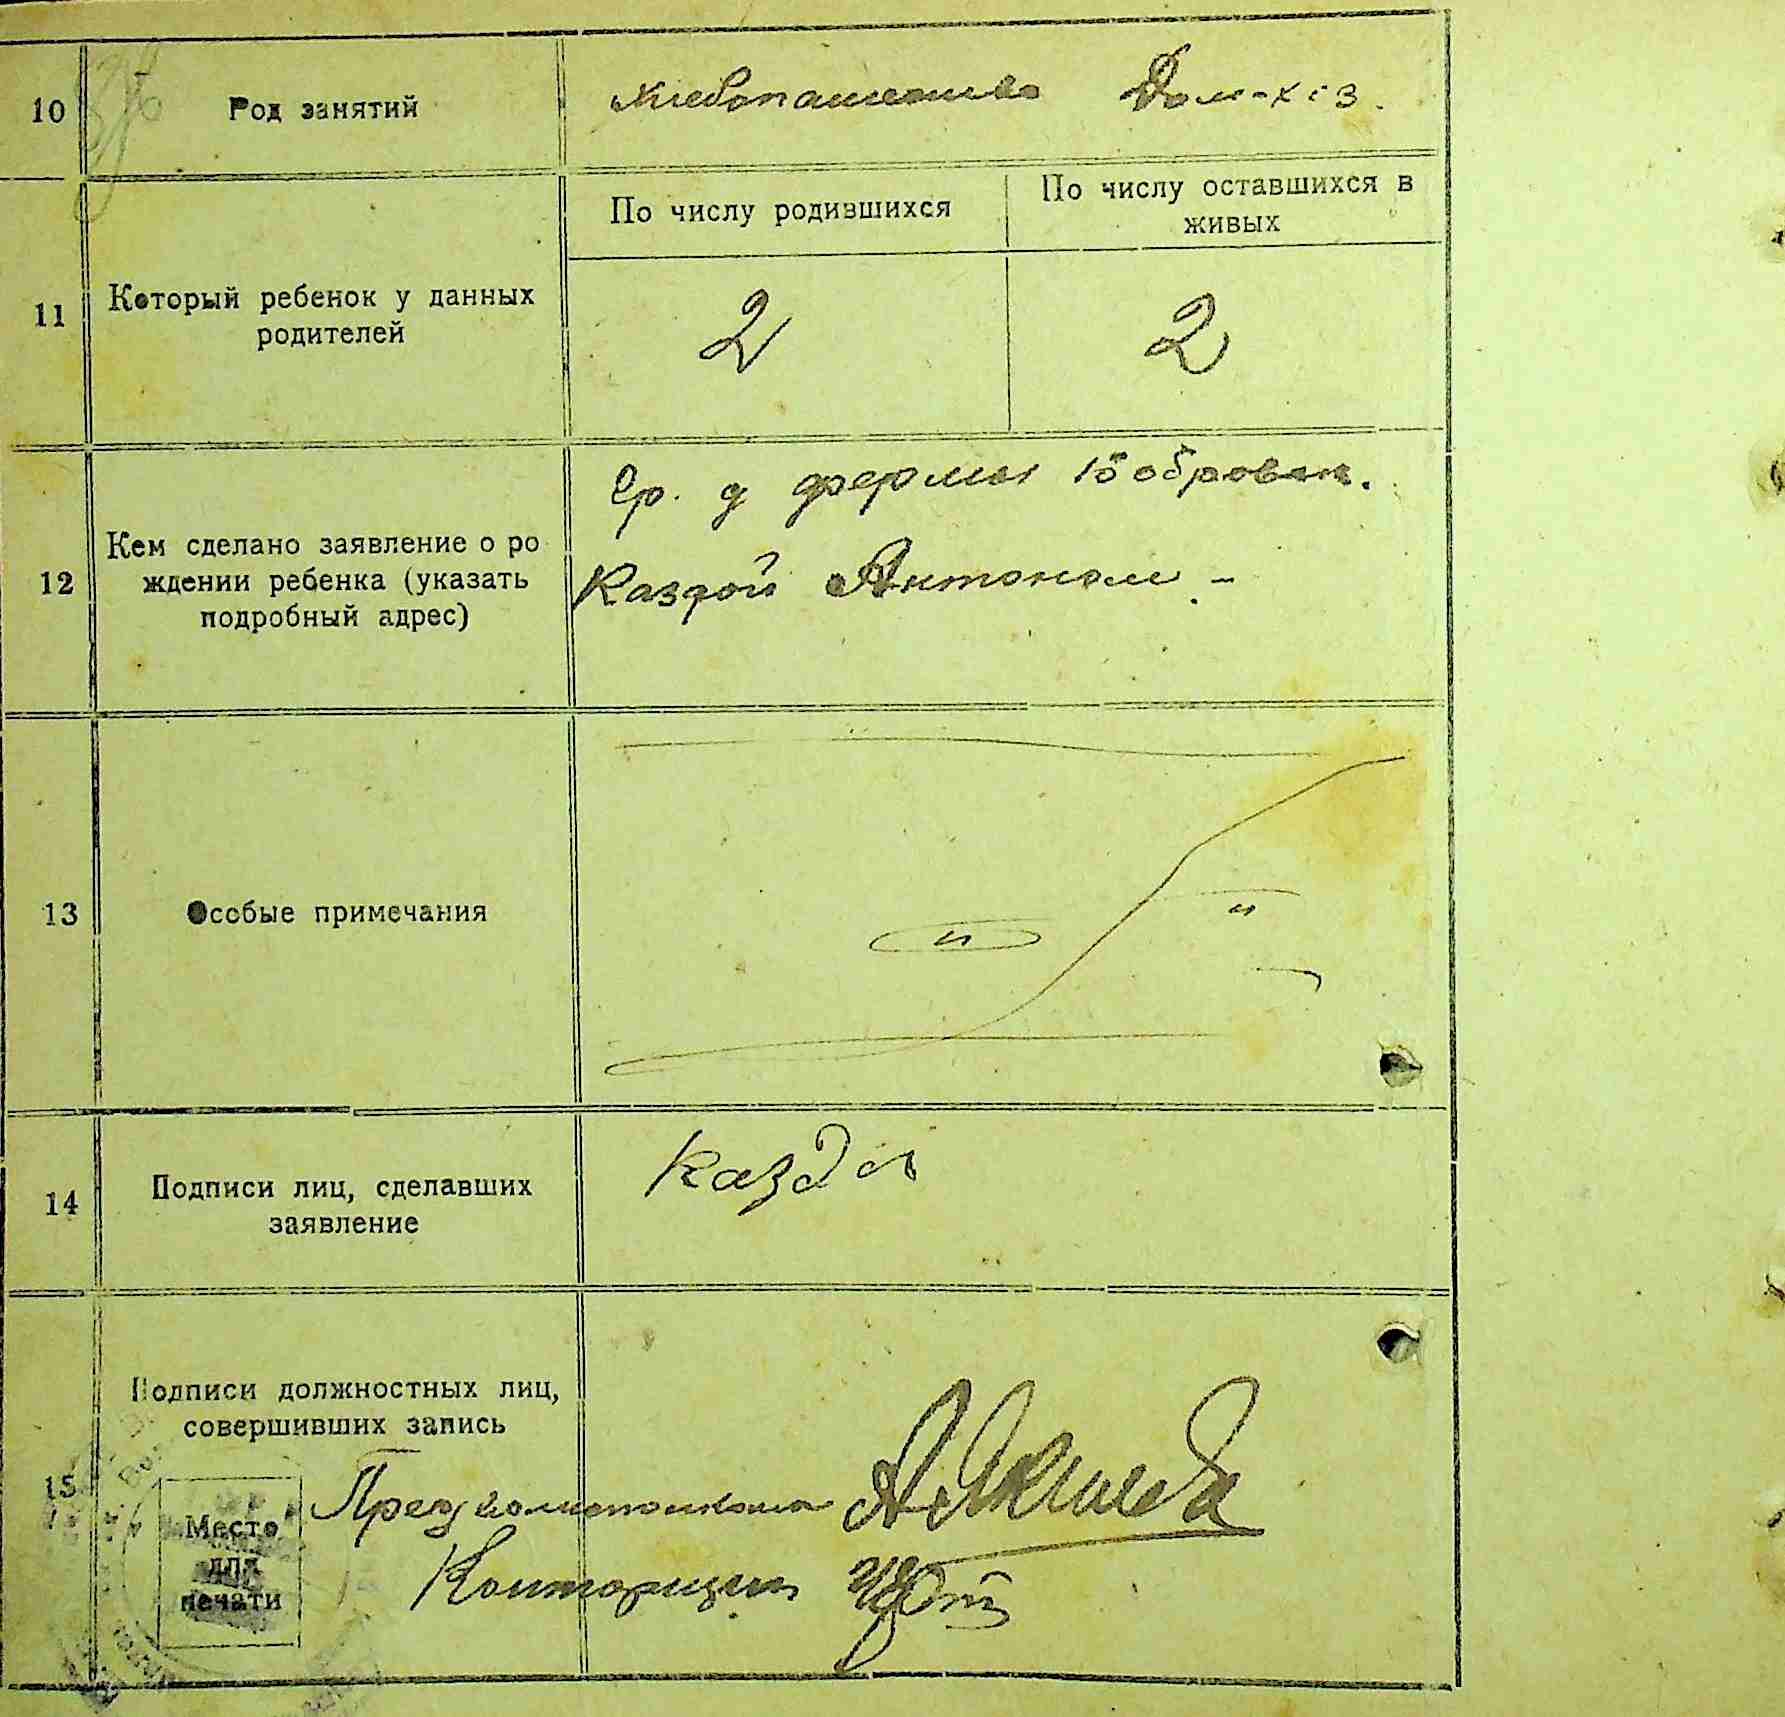 10 Род занятий Хлебопашество Дом-хоз.
По числу родившихся По числу оставшихся в
живых
11 Который ребенок у данных
родителей
2 2
гр. д фермы
12 Кем сделано заявление о ро
ждении ребенка (указать
подробный адрес)
Каздой Антоном -
13 Особые примечания
14 Подписи лиц, сделавших
заявление
Казда
15 Подписи должностных лиц,
совершивших запись
Место
для
печати
Пред
Конторщик